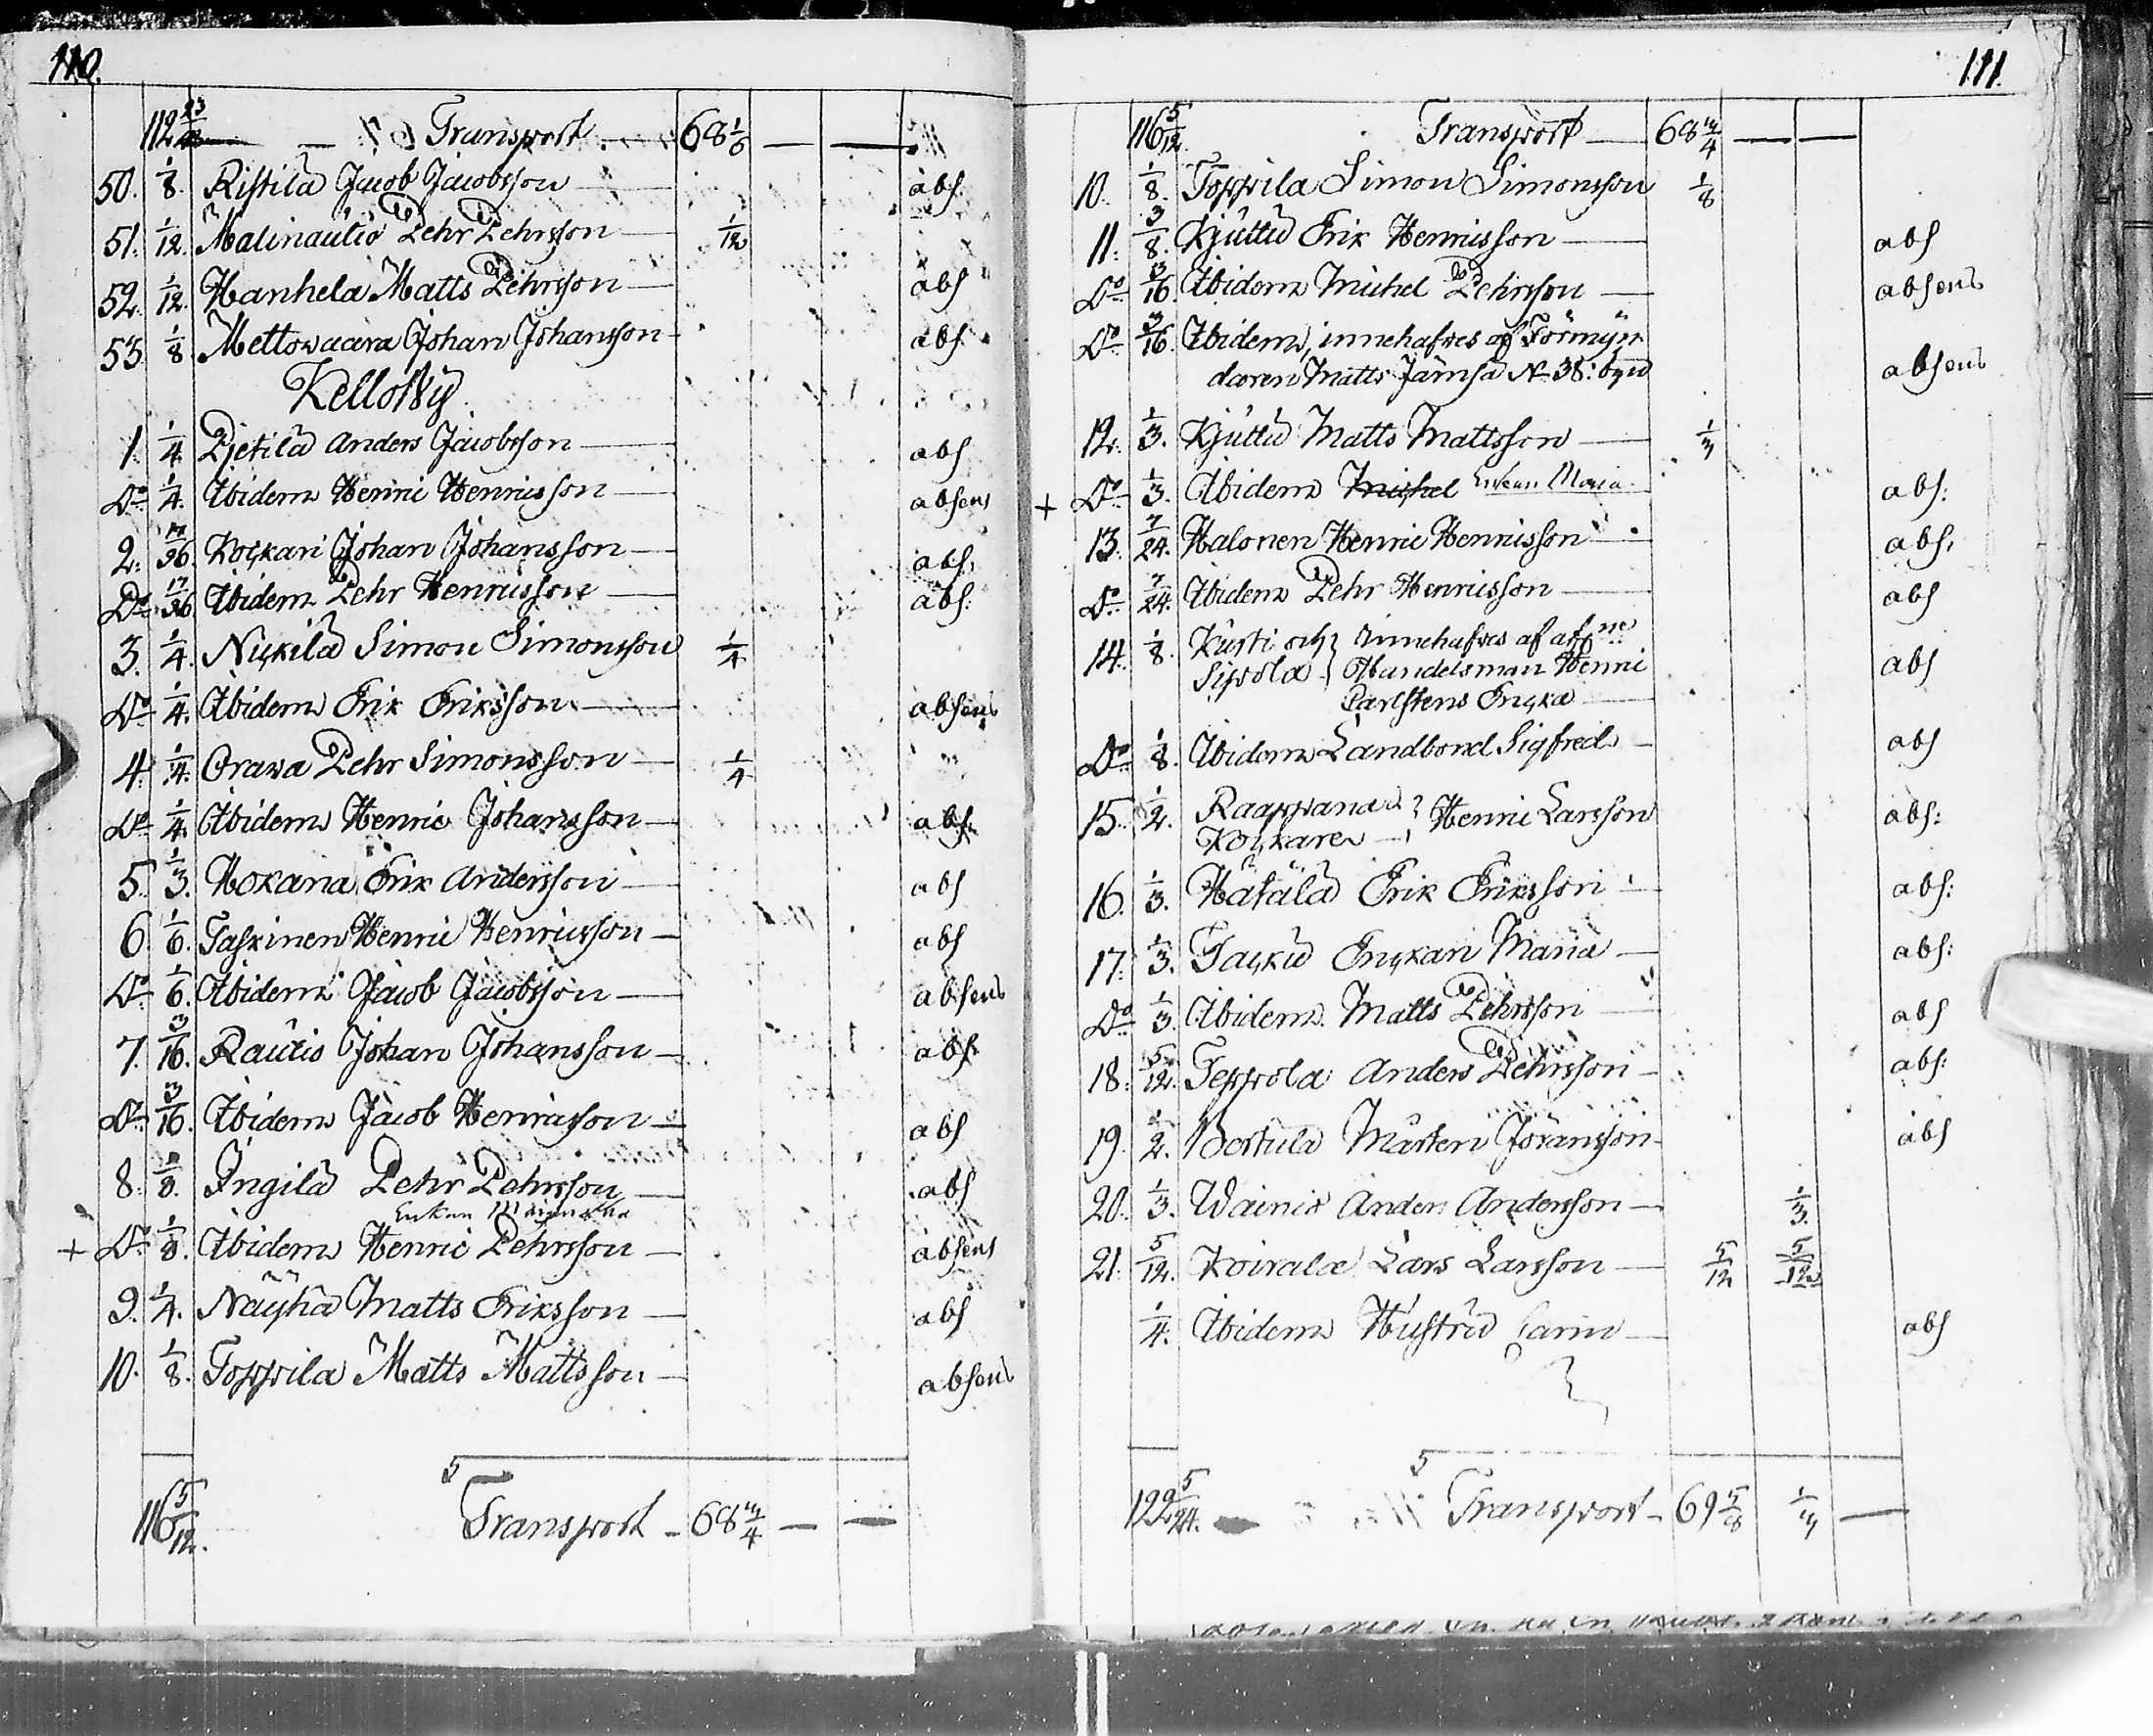 110.
112 23/48 Transport 68 1/6 — —
50. 1/8. Ristila Jacob Jacobsson abs.
51. 1/12. Malinautio Pehr Pehrsson 1/12
52. 1/12. Hanhela Matts Pehrsson abs
53. 1/8 Mettowaara Johan Johansson abs.
Kello By
1. 1/4 Pjetilä Anders Jacobsson abs
Do 1/4. Ibidem Henric Henricsson absens
2. 17/96. Kockari Johan Johansson abs.
Do 17/96 Ibidem Pehr Henricsson abs.
3. 1/4. Nickilä Simon Simonsson 1/4
Do 1/4. Ibidem Erik Eriksson absens
4. 1/4. Orawa Pehr Simonsson 1/4
Do 1/4. Ibidem Henric Johansson abs.
5. 1/3. Hokana Erik Andersson abs
6. 1/6. Taskinen Henric Henricsson abs
Do 1/6. Ibidem Jacob Jacobsson absens
7. 3/16. Rautio Johan Johansson abs.
Do 3/16. Ibidem Jacob Henricsson abs
8. 1/8. Ingilä Pehr Pehrsson abs
Enkan
+ Do 1/8. Ibidem Henric Pehrsson absens
9. 1/4. Näyhä Matts Eriksson abs
10. 1/8. Toppila Matts Mattsson absens
116 5/12. Transport 68 3/4 — —
111.
116 5/12 Transport 68 3/4 — —
10. 1/8. Toppila Simon Simonsson 1/8
11. 3/8. Kjuttu Erik Henricsson abs
Do 3/16. Ibidem Michel Pehrsson absens
Do 3/16. Ibidem, innehafves af Förmyn
daren Matts Jämsä No 38: byn absens
12. 1/3. Kjuttu Matts Mattsson 1/3
+ Do 1/3. Ibidem Michel Enkan Maria abs:
13. 7/24. Halonen Henric Henricsson abs.
Do 7/24. Ibidem Pehr Henricsson abs
14. 1/8. Kursti och } Innehafves af afl:ne
Sipola } Handelsman Henric abs
Carlstens Encka
Do 1/8. Ibidem Landbond Sigfred abs
15. 1/2. Raappana } Henric Larsson abs:
Kockare
16. 1/3. Hätälä Erik Eriksson abs:
17. 1/3. Jacku Enckan Maria abs:
Do 1/3. Ibidem Matts Pehrsson abs
18. 5/12. Teppola Anders Pehrsson abs:
19. 1/2. Bertula Mårten Jöransson abs
20. 1/3. Wainio Anders Andersson 1/3.
21. 5/12. Koirala Lars Larsson 5/12 5/12
1/4. Ibidem Hustru Carin abs
122 5/24. Transport 69 5/8 1/3 —